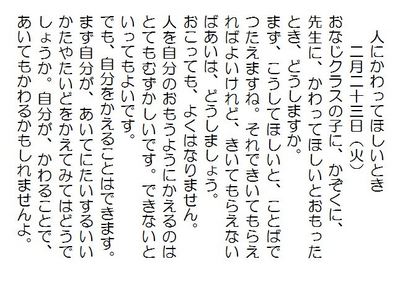 人にかわってほしいとき
二月二十三日（火）
おなじクラスの子に、かぞくに、
先生に、かわってほしいとおもった
とき、どうしますか。
まず、こうしてほしいと、ことばで
つたえますね。それできいてもらえ
ればよいけれど、きいてもらえない
ばあいは、どうしましょう。
おこっても、よくはなりません。
人を自分のおもうようにかえるのは
とてもむずかしいです。できないと
いってもよいです。
でも、自分をかえることはできます。
まず自分が、あいてにたいするいい
かたやたいどをかえてみてはどうで
しょうか。自分が、かわることで、
あいてもかわるかもしれませんよ。